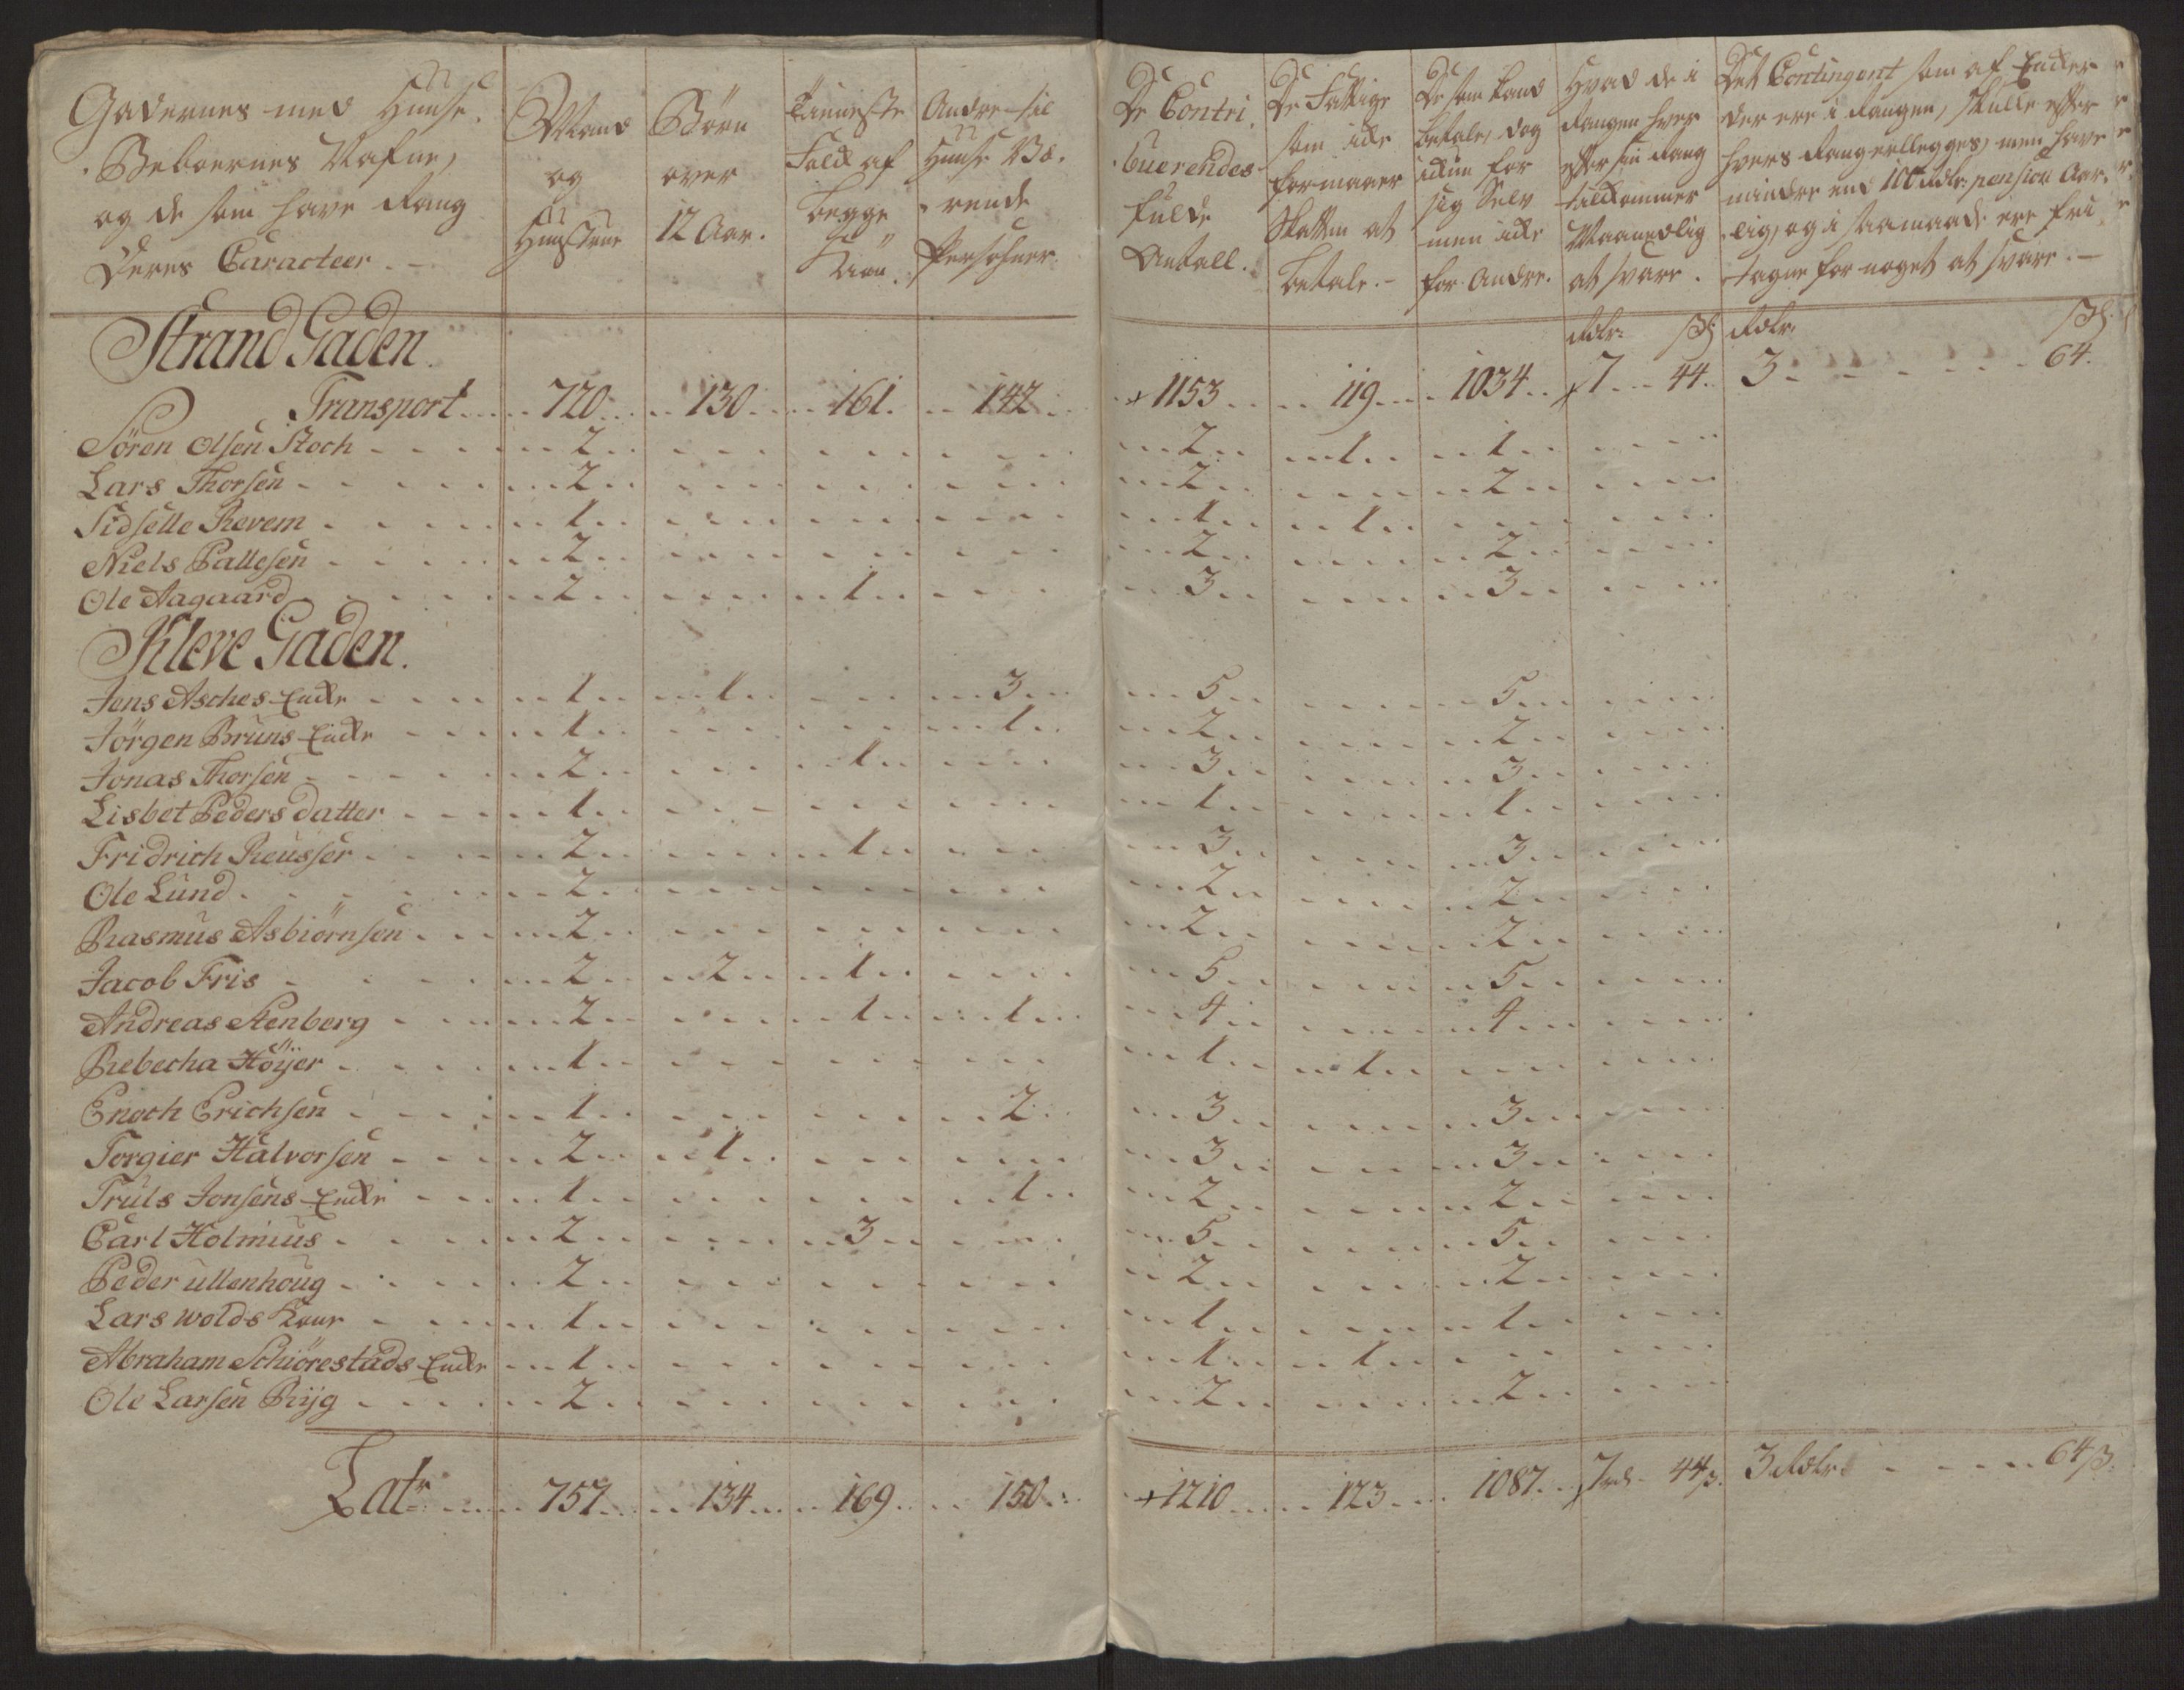 Gadernes med Huuse.
Beboernes Nafne,
og de som have Rang
Deres Caracteer. -
Mand
og
Hustrue
Börn
over
12 Aar.
Tienneste
Folck af
begge
Kiön.
Andre til
Huuse Væ.
rende
Persohner
De Contri.
buerendes
fulde
Antall.
De Fattige
som icke
formaaer
Skatten at
betale. -
De som kand
betale, dog
ickun for
sig Selv
men icke
for Andre.
Hvad de i
Rangen hver
efter sin Rang
tilkommer
Maanedlig
at svare.
Det Contingent som af Encker
der ere i Rangen, skulle efter
hvers Rang erlegges, men have
mindre end 100 Rdlr. pension Aar.
lig, og i saamaade ere fri
tagne for noget at svare. -
Strand Gaden.
Rdlr. ß Rdlr. ß.
Transport 720 130 161. 142 + 1153 119 1034 7 44. 3 64.
Sören Olsen Stoch 2 2 1 1
Lars Thorsen 2 2 2
Sidselle Revem 1 1 1
Niels Pallesen 2 2 2
Ole Aagaard 2 1 3 3
Kleve Gaden.
Jens Asches Encke 1 1 3 5 5
Jörgen Bruns Encke 1 1 2 2
Jonas Thorsen 2 1 3 3
Lisbet Peders datter 1 1 1
Fridrich Reusser 2 1 3 3
Ole Lund 2 2 2
Rasmus Asbiörnsen 2 2 2
Jacob Fris 2 2 1 5 5
Andreas Stenberg 2 1 1 4 4
Rebecha Höÿer 1 1 1
Enoch Erichsen 1 2 3 3
Torgier Halvorsen 2 1 3 3
Truls Jonsens Encke 1 1 2 2
Carl Holmius 2 3 5 5
Peder Ullenhoug 2 2 2
Lars Wolds Kone 1 1 1
Abraham Schiörestads Encke 1 1 1
Ole Larsen Rÿg 2 2 2
Latr. 757 134 169 150 + 1210 123 1087 7 rd. 44 ß. 3 Rdlr. 64 ß.